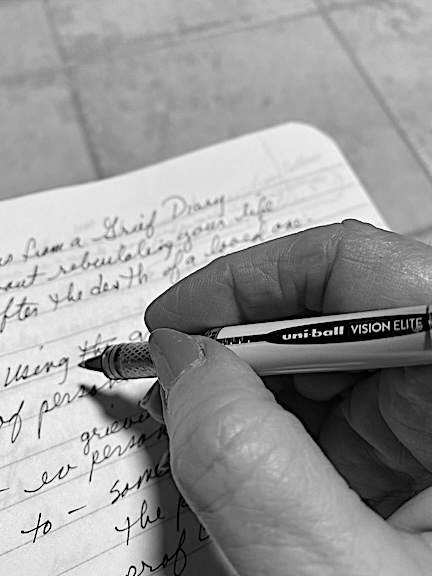 from a Grief Diary
out rebuilding your life
after the death of a loved one.
using the
of person
grievi
- ev person
to - some
the p
prof
uni-ball VISION ELITE